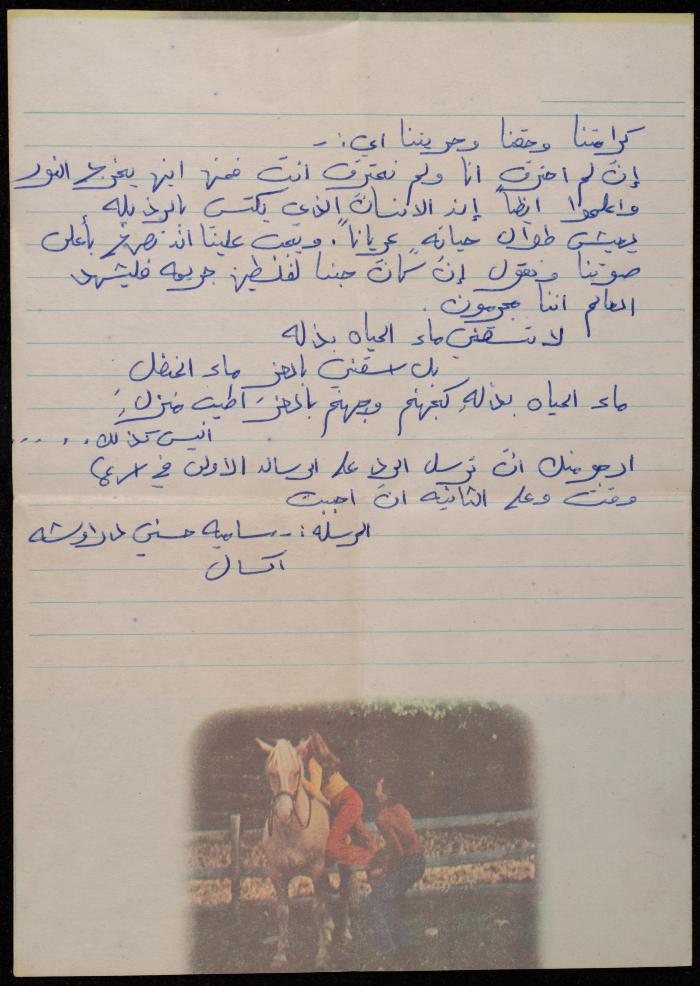 كرامتنا وحقنا وحريتنا اي :-
إن لم احترق انا ولم تحترق انت فمن اين يخرج النور
واعلموا ايضاً إن الانسان الذي يكتسي بالرذيله
يعيش طوال حياته عرياناً. ويجب علينا ان نصرخ بأعلى
صوتنا ونقول إن كان حبنا لفلسطين جريمه فليشهد
العالم اننا مجرمون.
لا تسقني ماء الحياه بذله
بل اسقني بالعز ماء الحنظل
ماء الحياه بذله كجهنم وجهنم بالعز اطيب منزل
اليس كذلك....
ارجو منك ان ترسل الرد على الرساله الأولى في اسرع
وقت وعلى الثانيه ان احببت
المرسله :- ساميه حسني دراوشه
اكسال